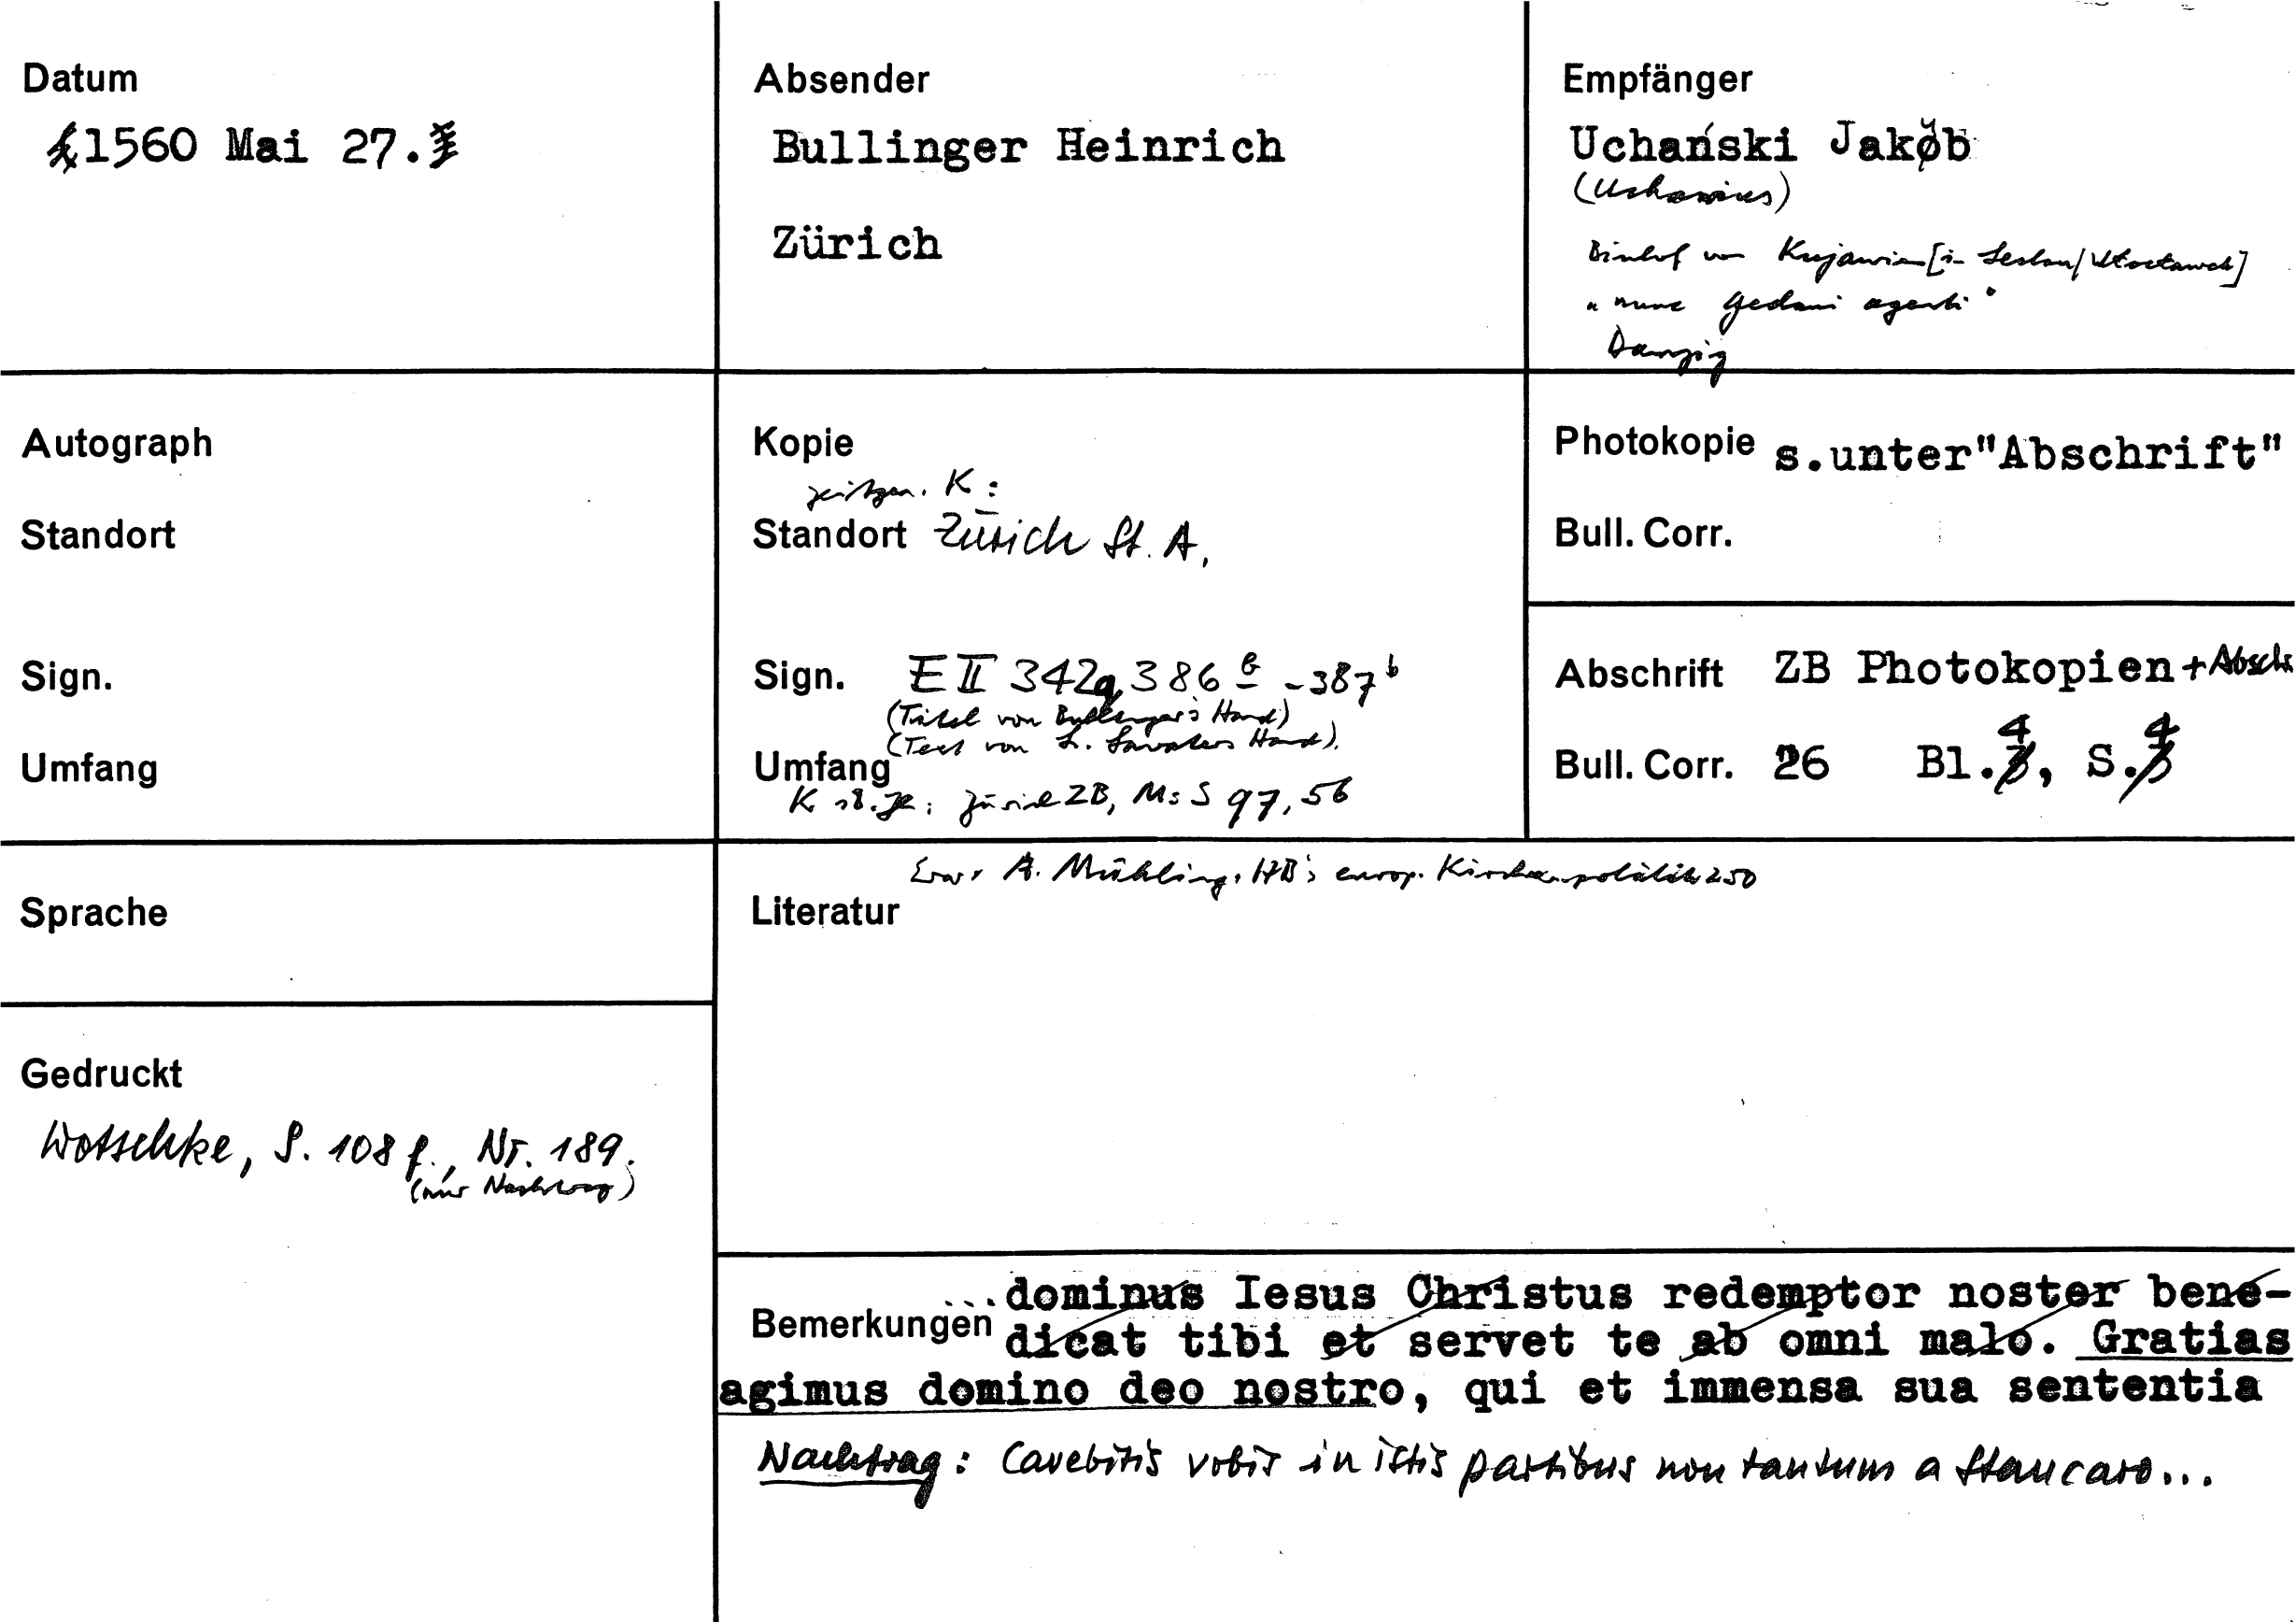 Datum
1560 Mai 27.
Absender
Bullinger Heinrich
Zürich
Empfänger
Uchański Jakob
(Uchanius)
Bischof von Kujawien [in Leslau/Włocławek]
"nunc Gedani agenti"
Danzig
Autograph
Standort
Sign.
Umfang
Kopie
zeitgen. K:
Standort Zürich St. A.
Sign. E II 342a, 386 a - 387 b
(Titel von Bullingers Hand)
(Text von L. Lavaters Hand).
Umfang
K 18. Jh: Zürich ZB, Ms S 97, 56
Photokopie s.unter"Abschrift"
Bull. Corr.
Abschrift ZB Photokopien + Absch
Bull. Corr. 26 Bl. 4, S. 4
Sprache
Erw. A. Mühling, HB's europ. Kirchenpolitik 250
Literatur
Gedruckt
Wotschke, S. 108 f., Nr. 189.
(nur Nachtrag)
Bemerkungen ...dominus Iesus Christus redemptor noster bene-
dicat tibi et servet te ab omni malo. Gratias
agimus domino deo nostro, qui et immensa sua sententia
Nachtrag: Cavebitis vobis in istis partibus non tantum a Stancaro...